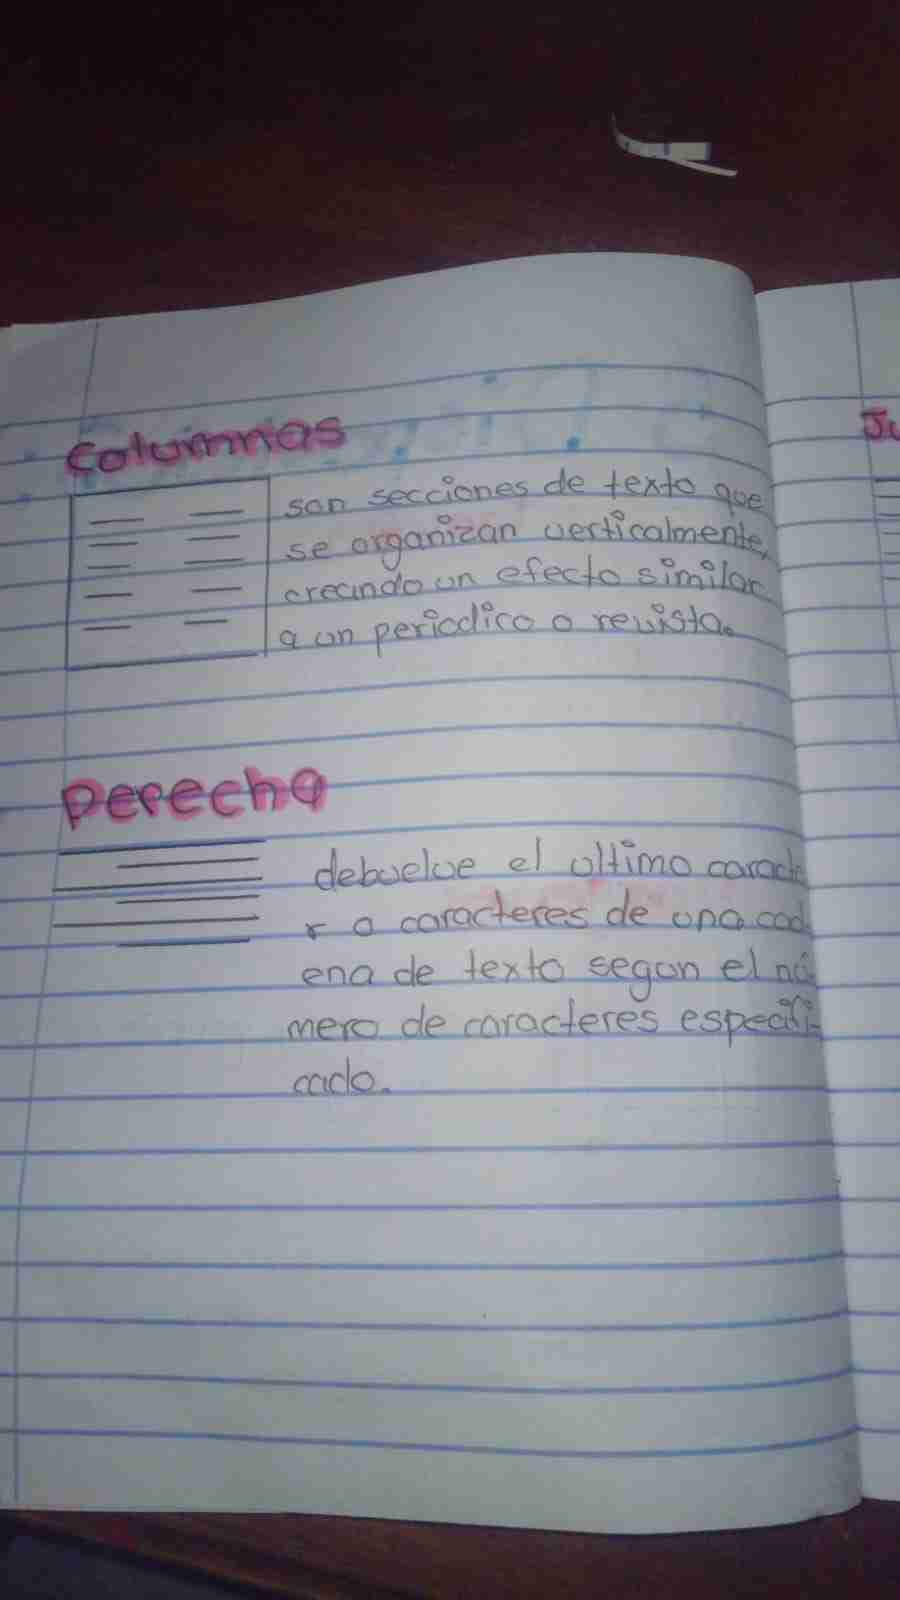 Columnas
son secciones de texto que
se organizan verticalmente,
creando un efecto similar
a un periodico o revista.
Derecha
debuelve el ultimo caracte
r o caracteres de una cad
ena de texto segun el nú
mero de caracteres especifi-
cado.